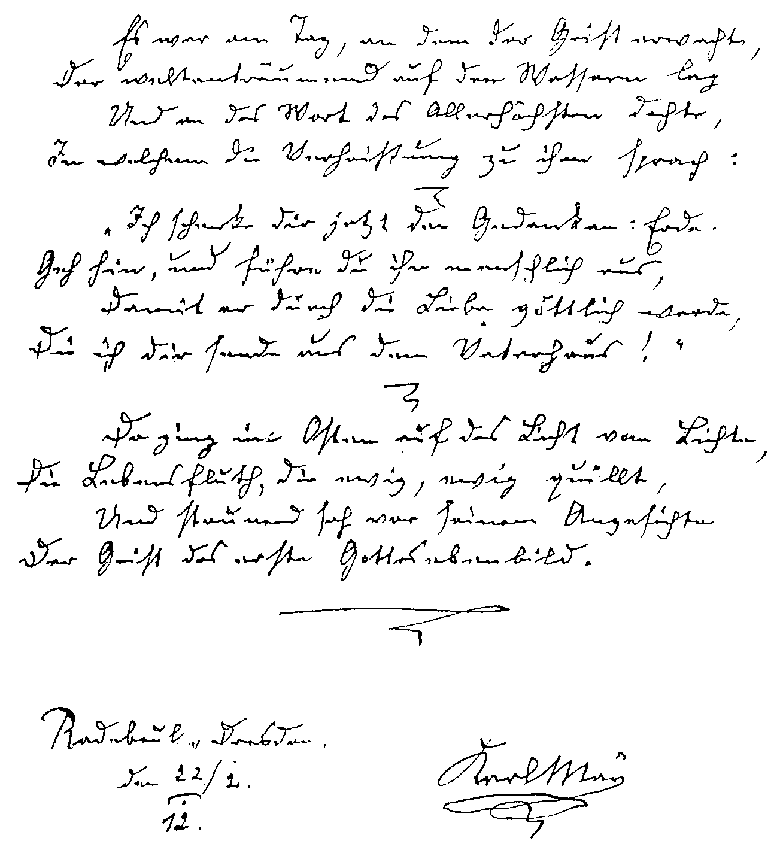 Es war am Tag, an dem der Geist erwachte,
Der weltenträumend auf den Wassern lag
Und an das Wort des Allerhöchsten dachte,
In welchem die Verheißung zu ihm sprach:
„Ich schenke dir jetzt den Gedanken: Erde.
Geh hin, und führe du ihn menschlich aus,
Damit er durch die Liebe göttlich werde,
Die ich dir sende aus dem Vaterhaus!“
Da ging im Osten auf das Licht vom Lichte,
Die Lebensfluth, die ewig, ewig quillt,
Und staunend sah vor seinem Angesichte
Der Geist das erste Gottesebenbild.
Radebeul-Dresden.
den 22/2.
12.
Karl May